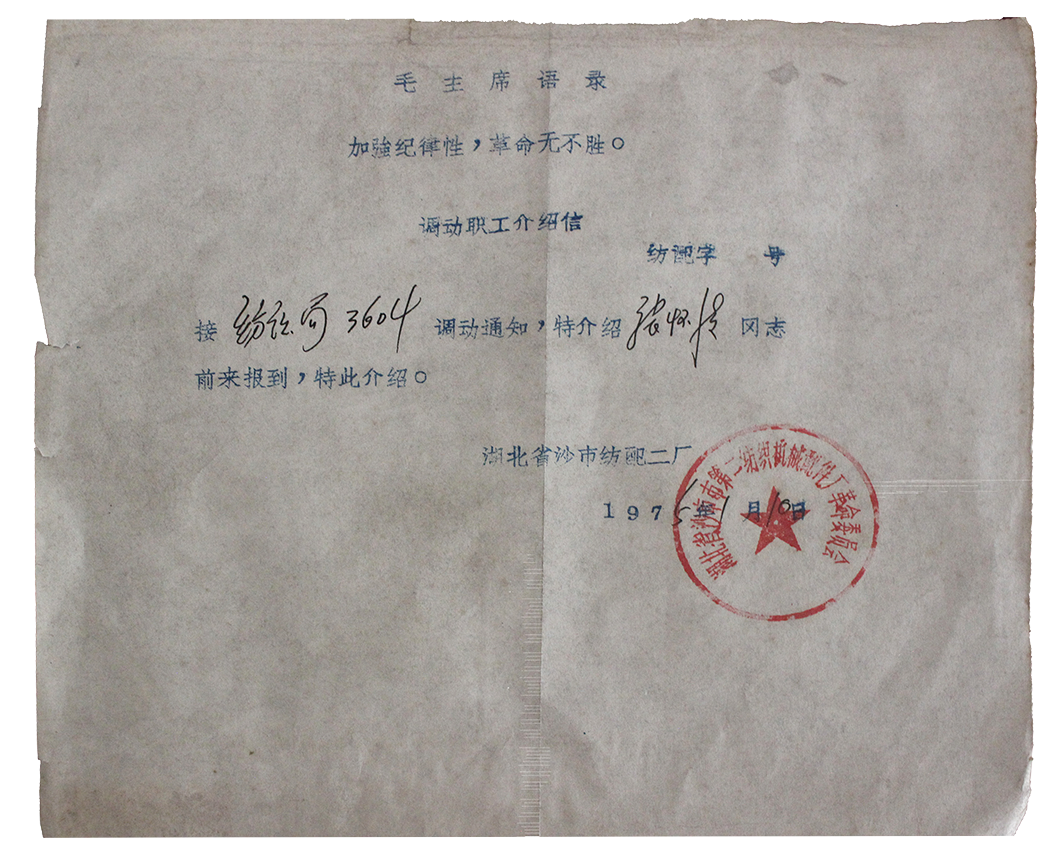 毛主席语录
加強纪律性，革命无不胜。
调动职工介绍信
纺配字 号
接 纺织局 3604 调动通知，特介绍 张怀 同志
前来报到，特此介绍。
湖北省沙市纺配二厂
1975年1月10日
湖北省沙市市第二纺织机械配件厂革命委员会